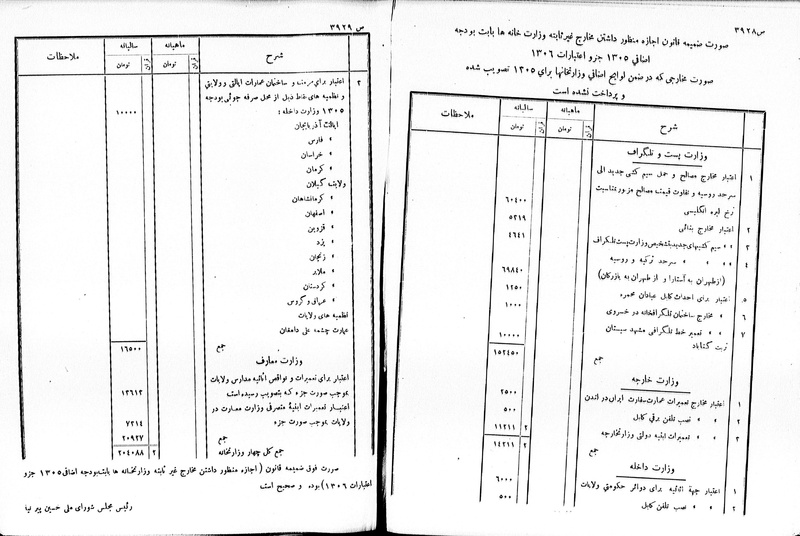 ص ۳۹۲۸
صورت ضمیمه قانون اجازه منظور داشتن مخارج غیر ثابته وزارت خانه ها بابت بودجه
اضافی ۱۳۰۵ جزو اعتبارات ۱۳۰۶
صورت مخارجی که در ضمن لوایح اضافی وزارتخانها برای ۱۳۰۵ تصویب شده
و پرداخت نشده است
شرح ماهیانه سالیانه ملاحظات
قران تومان قران تومان
وزارت پست و تلگراف
۱ اعتبار مخارج مصالح و حمل سیم کشی جدید الی
سرحد روسیه و تفاوت قیمت مصالح مزبور بمناسبت
نرخ لیره انگلیسی ۶۰۴۰۰
۲ اعتبار مخارج بنائی ۵۲۱۹
۳ « « سیم کشیهای جدید بتشخیص وزارت پست و تلگراف ۴۶۴۱
۴ « « « سرحد ترکیه و روسیه
(از طهران به آستارا و از طهران به بازرگان) ۶۹۸۴۰
۵ اعتبار برای احداث کابل عبادان محمره ۱۲۵۰
۶ « مخارج ساختمان تلگرافخانه در خسروی ۱۰۰۰
۷ « « تعمیر خط تلگرافی مشهد سیستان
تربت گناباد ۱۰۰۰۰
جمع ۱۵۲۴۵۰
وزارت خارجه
۱ اعتبار مخارج تعمیرات عمارت سفارت ایران در لندن ۲۵۰۰
۲ « « نصب تلفن برقی کابل ۵۰۰
۳ « « تعمیرات ابنیه دولتی وزارتخارجه ۲ ۱۱۲۱۱
جمع ۲ ۱۴۲۱۱
وزارت داخله
۱ اعتبار جهة اثاثیه برای دوائر حکومتی ولایات ۶۰۰۰
۲ « « نصب تلفن کابل ۵۰۰
ص ۳۹۲۹
شرح ماهیانه سالیانه ملاحظات
قران تومان قران تومان
۳ اعتبار برای مرمت و ساختمان عمارات ایالتی و ولایتی
و نظمیه های نقاط ذیل از محل صرفه جوئی بودجه
۱۳۰۵ وزارت داخله : ۱۰۰۰۰
ایالت آذربایجان
« فارس
« خراسان
« کرمان
ولایت گیلان
« کرمانشاهان
« اصفهان
« قزوین
« یزد
« زنجان
« ملایر
« کردستان
« عراق و گروس
نظمیه های ولایات
عمارت چشمه علی دامغان
جمع ۱۶۵۰۰
وزارت معارف
اعتبار برای تعمیرات و نواقص اثاثیه مدارس ولایات
بموجب صورت جزء که بتصویب رسیده است ۱۳۶۱۳
اعتبار تعمیرات ابنیهٔ متصرفی وزارت معارف در
ولایات بموجب صورت جزء ۷۳۱۴
جمع ۲۰۹۲۷
جمع کل چهار وزارتخانه ۲ ۲۰۴۰۸۸
صورت فوق ضمیمه قانون (اجازه منظور داشتن مخارج غیر ثابته وزارتخانه ها بابت بودجه اضافی ۱۳۰۵ جزو
اعتبارات ۱۳۰۶) بوده و صحیح است
رئیس مجلس شورای ملی حسین پیر نیا